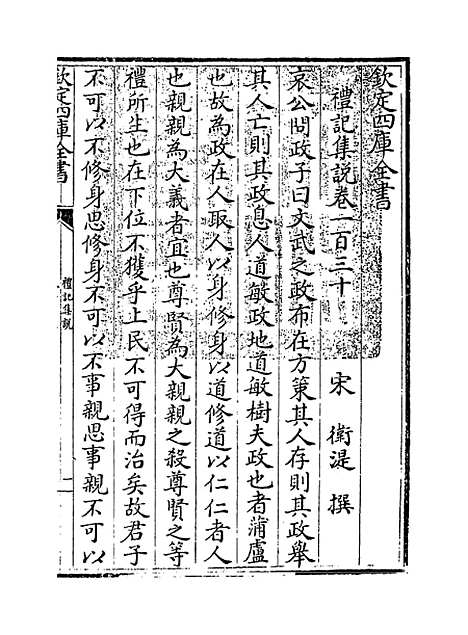 欽定四庫全書
禮記集說卷一百三十
宋 衛湜 撰
哀公問政子曰文武之政布在方策其人存則其政舉
其人亡則其政息人道敏政地道敏樹夫政也者蒲盧
也故為政在人取人以身修身以道修道以仁仁者人
也親親為大義者宜也尊賢為大親親之殺尊賢之等
禮所生也在下位不獲乎上民不可得而治矣故君子
不可以不修身思修身不可以不事親思事親不可以
欽定四庫全書
禮記集說
一